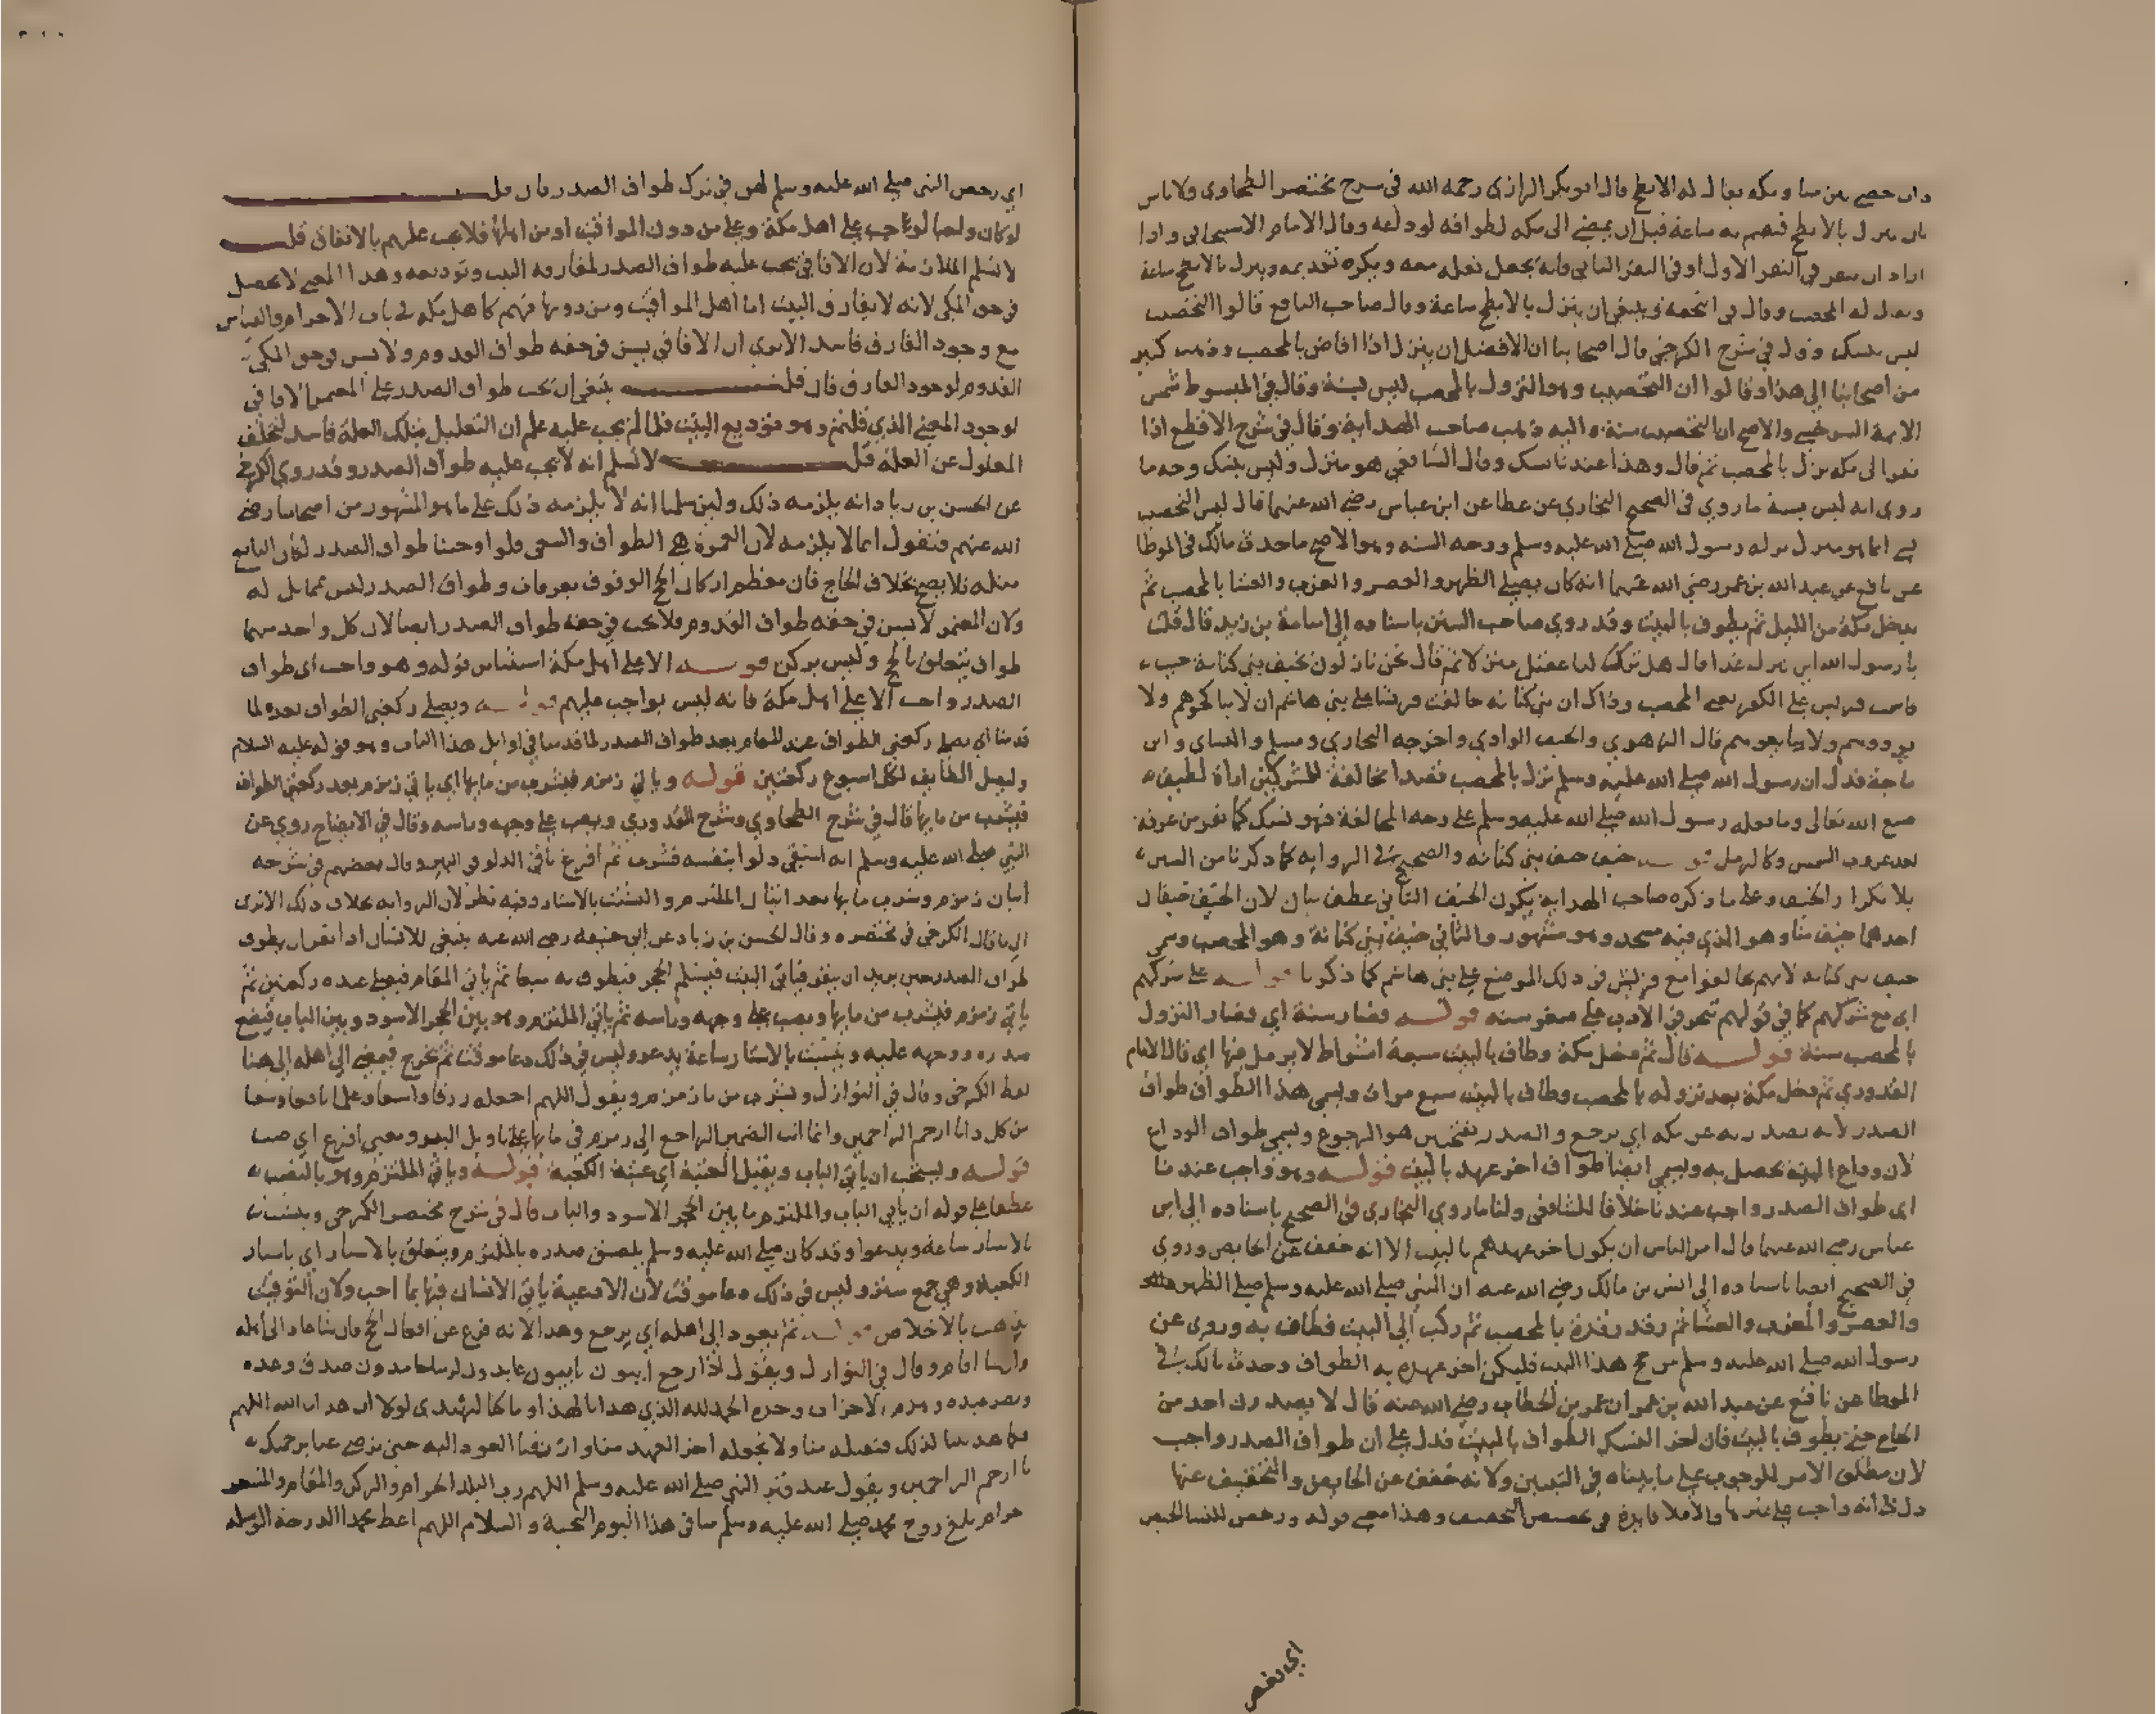 وادى حصى بين منا ومكه يقال له الابطح قال ابو بكر الرازى رحمه الله فى شرح مختصر الطحاوى ولا باس
بان ينزل بالابطح فيقيم به ساعة قبل ان يمضى الى مكه لطوافه لوداعه وقال الامام الاسبيجابى واذا
اراد ان ينفر فى النفر الاول او فى النفر الثانى فانه يحمل ثقله معه ويكره تقديمه وينزل بالابطح ساعة
ويقال له المحصب وقال فى التحفة وينبغى ان ينزل بالابطح ساعة وقال صاحب النافع قالوا التحصيب
ليس بنسك وقال فى شرح الكرخى قال اصحابنا ان الافضل ان ينزل اذا افاض بالمحصب وذهب كثير
من اصحابنا الى هذا وقالوا ان التحصيب وهو النزول بالمحصب ليس بسنة وقال فى المبسوط شمس
الايمة السرخسى والاصح ان التحصيب سنة واليه ذهب صاحب الهداية وقال فى شرح الاقطع اذا
نفر الى مكه نزل بالمحصب ثم قال وهذا عندنا نسك وقال الشافعى هو منزل وليس بنسك وجه ما
روى انه ليس بسنة ما روي فى الصحيح البخاري عن عطا عن ابن عباس رضى الله عنهما قال ليس التحصيب
بشى انما هو منزل نزله رسول الله صلى الله عليه وسلم ووجه السنه وهو الاصح ما حدث مالك فى الموطا
عن نافع عن عبد الله بن عمر رضى الله عنهما انه كان يصلى الظهر والعصر والمغرب والعشا بالمحصب ثم
يدخل مكة من الليل ثم يطوف بالبيت وقد روى صاحب السنن باسناده الى اسامة بن زيد قال قلت
يا رسول الله اين تنزل غدا قال هل ترك لنا عقيل منزلا ثم قال نحن نازلون بخيف بني كنانة حيث
قاسمت قريش على الكفر يعنى المحصب وذاك ان بني كنانه حالفت قريشا على بني هاشم ان لا يناكحوهم ولا
يووهم ولا يبايعوهم قال الزهري والخيف الوادي واخرجه البخاري ومسلم والنساي وابن
ماجة فدل ان رسول الله صلى الله عليه وسلم نزل بالمحصب قصدا مخالفة للمشركين اراة لطيف
صنع الله تعالى وما فعله رسول الله صلى الله عليه وسلم على وجه المخالفة فهو نسك كما نفر من عرفة
بعد غروب الشمس وكالرمل قوله خيف خيف بني كنانه والصحيح فى الروايه كما ذكرنا من السنن
بلا تكرار الخيف وعلى ما ذكره صاحب الهداية يكون الخيف الثاني عطف بيان لان الخيف خيفان
احدهما خيف منا وهو الذي فيه مسجد وهو مشهور والثاني خيف بني كنانة وهو المحصب وسمى
خيف بنى كنانه لانهم تحالفوا مع قريش فى ذلك الموضع على بني هاشم كما ذكرنا قوله على شركهم
اى مع شركهم كما فى قولهم تبحر فى الادب على صغر سنه قوله فصار سنة اي فصار النزول
بالمحصب سنة قوله قال ثم دخل مكة وطاف بالبيت سبعة اشواط لا يرمل فيها اي قال الامام
القدوري ثم دخل مكة بعد نزوله بالمحصب وطاف بالبيت سبع مرات ويسمى هذا الطواف طواف
الصدر لانه يصدر به عن مكه اي يرجع والصدر بفتحتين هو الرجوع ويسمى طواف الوداع
لان وداع البيت يحصل به ويسمى ايضا طواف اخر عهد بالبيت قوله وهو واجب عندنا
اى طواف الصدر واجب عندنا خلافا للشافعى ولنا ما روي البخارى فى الصحيح باسناده الى ابن
عباس رضى الله عنهما قال امر الناس ان يكون اخر عهدهم بالبيت الا انه خفف عن الحايض وروي
فى الصحيح ايضا باسناده الى انس بن مالك رضى الله عنه ان النبي صلى الله عليه وسلم صلى الظهر
والعصر والمغرب والعشا ثم رقد رقدة بالمحصب ثم ركب الى البيت فطاف به وروى عن
رسول الله صلى الله عليه وسلم من حج هذا البيت فليكن اخر عهده به الطواف وحدث مالك فى
الموطا عن نافع عن عبد الله بن عمر ان عمر بن الخطاب رضى الله عنه قال لا يصدرن احد من
الحاج حتى يطوف بالبيت فان اخر النسك الطواف بالبيت فدل على ان طواف الصدر واجب
لان مطلق الامر للوجوب على ما بيناه فى التبيين ولانه خفف عن الحايض والتخفيف عنها
دل على انه واجب على غيرها والا فلا فايدة فى تخصيص التخفيف وهذا معنى قوله ورخص للنسا الحيض
اي رخص
اي رخص النبى صلى الله عليه وسلم لهن فى ترك طواف الصدر فان قلت
لو كان واجبا لوجب على اهل مكة وعلى من دون المواقيت او من اهلها فلا يجب عليهم بالاتفاق قلت
لا نسلم الملازمة لان الافاقى يجب عليه طواف الصدر لمفارقه البيت وتوديعه وهذا المعنى لا يحصل
فى حق المكى لانه لا يفارق البيت اما اهل المواقيت ومن دونها فهم كاهل مكه فى باب الاحرام والقياس
مع وجود الفارق فاسد الا يرى ان الافاقى يسن فى حقه طواف القدوم ولا يسن فى حق المكى
القدوم لوجود الفارق فان قلت ينبغى ان يجب طواف الصدر على المعتمر الافاقى
لوجود المعنى الذي قلتم وهو توديع البيت فلما لم يجب عليه علم ان التعليل بتلك العلة فاسد لتخلف
المعلول عن العلة قلت لا نسلم انه لا يجب عليه طواف الصدر وقد روي الكرخى
عن الحسن بن زياد انه يلزمه ذلك ولين سلمنا انه لا يلزمه ذلك على ما هو المشهور من اصحابنا رضى
الله عنهم فنقول انما لا يلزمه لان العمرة هى الطواف والسعى فلو اوجبنا طواف الصدر لكان التابع
مثله فلا يصح بخلاف الحاج فان معظم اركان الحج الوقوف بعرفات وطواف الصدر ليس مماثل له
وكان المعتمر لا يسن في حقه طواف القدوم فلا يجب في حقه طواف الصدر ايضا لان كل واحد منهما
طواف يتعلق بالحج وليس بركن قوله الا على اهل مكة استثنا من قوله وهو واجب اى طواف
الصدر واجب الا على اهل مكة فانه ليس بواجب عليهم قوله ويصلى ركعتى الطواف بعده لما
قدمنا اى يصلى ركعتي الطواف عند المقام بعد طواف الصدر لما قدمنا فى اوايل هذا الباب وهو قوله عليه السلام
وليصل الطايف لكل اسبوع ركعتين قوله وياتي زمزم فيشرب من مايها اى ياتي زمزم بعد ركعتي الطواف
فيشرب من مايها قال فى شرح الطحاوي وشرح القدوري ويصب على وجهه وراسه وقال فى الايضاح روي عن
النبي صلى الله عليه وسلم انه استقى دلوا بنفسه فشرب ثم افرغ باقى الدلو فى البير وقال بعضهم فى شرحه
اتيان زمزم وشرب مايها بعد اتيان الملتزم والتشبث بالاستار وفيه نظر لان الروايه بخلاف ذلك الا ترى
الى ما قال الكرخى فى مختصره وقال الحسن بن زياد عن ابى حنيفه رضى الله عنه ينبغي للانسان اذا اراد ان يطوف
طواف الصدر حين يريد ان ينفر فياتي البيت فيستلم الحجر فيطوف به سبعا ثم ياتي المقام فيصلى عنده ركعتين ثم
ياتي زمزم فيشرب من مايها ويصب على وجهه وراسه ثم ياتي الملتزم وهو بين الحجر الاسود وبين الباب فيضع
صدره ووجهه عليه ويتشبث بالاستار ساعة يدعو وليس في ذلك دعا موقت ثم يخرج فيمضي الى اهله الى هنا
لفظ الكرخى وقال فى النوازل ويشرب من ما زمزم ويقول اللهم اجعله رزقا واسعا وعلما نافعا وشفا
من كل داء يا ارحم الراحمين وانما انث الضمير الراجع الى زمزم فى مايها على تاويل البير ومعنى افرغ اي صب
قوله ويستحب ان ياتى الباب ويقبل العتبة اى عتبة الكعبة قوله وياتى الملتزم وهو بالنصب
عطفا على قوله ان ياتي الباب والملتزم ما بين الحجر الاسود والباب قال فى شرح مختصر الكرخى ويتشبث
بالاستار ساعة ويدعوا وقد كان صلى الله عليه وسلم يلصق صدره بالملتزم ويتعلق بالاستار اي باستار
الكعبة وهى جمع ستر وليس فى ذلك دعا موقت لان الادعية ياتى الانسان فيها بما احب وكان التوقيت
يذهب بالاخلاص قوله ثم يعود الى اهله اي يرجع وهذا لانه فرغ عن افعال الحج فان شا عاد الى اهله
وان شا اقام وقال فى النوازل ويقول اذا رجع ايبون تايبون عابدون لربنا حامدون صدق وعده
ونصر عبده وهزم الاحزاب وحده الحمد لله الذي هدانا لهذا وما كنا لنهتدى لولا ان هدانا الله اللهم
فكما هديتنا لذلك فتقبله منا ولا تجعله اخر العهد منا وارزقنا العود اليه حتى ترضى عنا برحمتك
يا ارحم الراحمين ويقول عند قبر النبي صلى الله عليه وسلم اللهم رب البلد الحرام والركن والمقام والمشعر
حرام بلغ روح محمد صلى الله عليه وسلم منا فى هذا اليوم التحية والسلام اللهم اعط محمدا الدرجة الوسيله